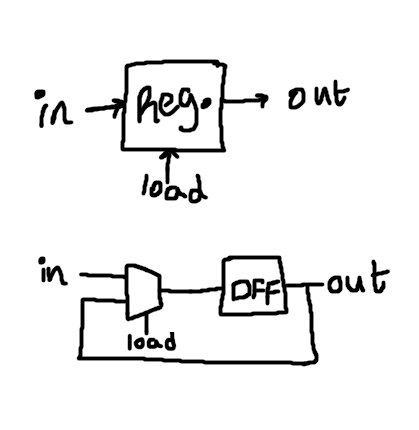 in Reg. out
load
in DFF out
load